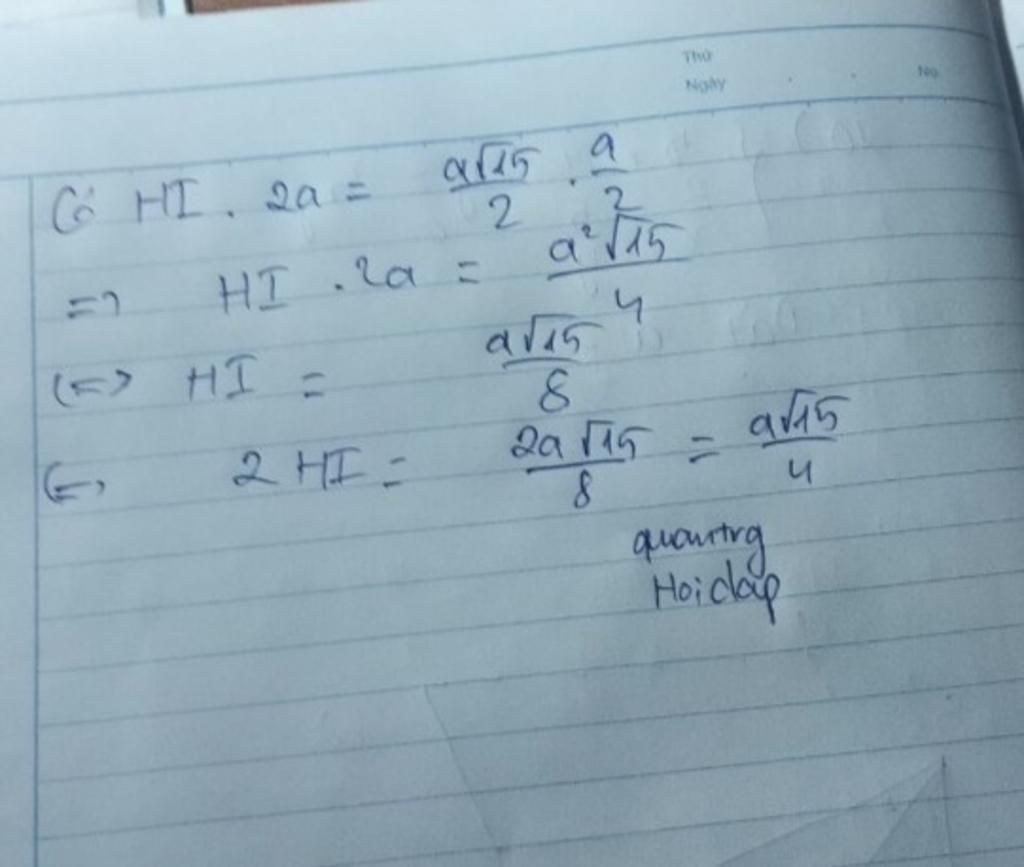 Thứ
Ngày No.
Có HI . 2a = a√15/2 . a/2
=> HI . 2a = a²√15/4
<=> HI = a√15/8
<=> 2 HI = 2a√15/8 = a√15/4
quantrg
Hoidap